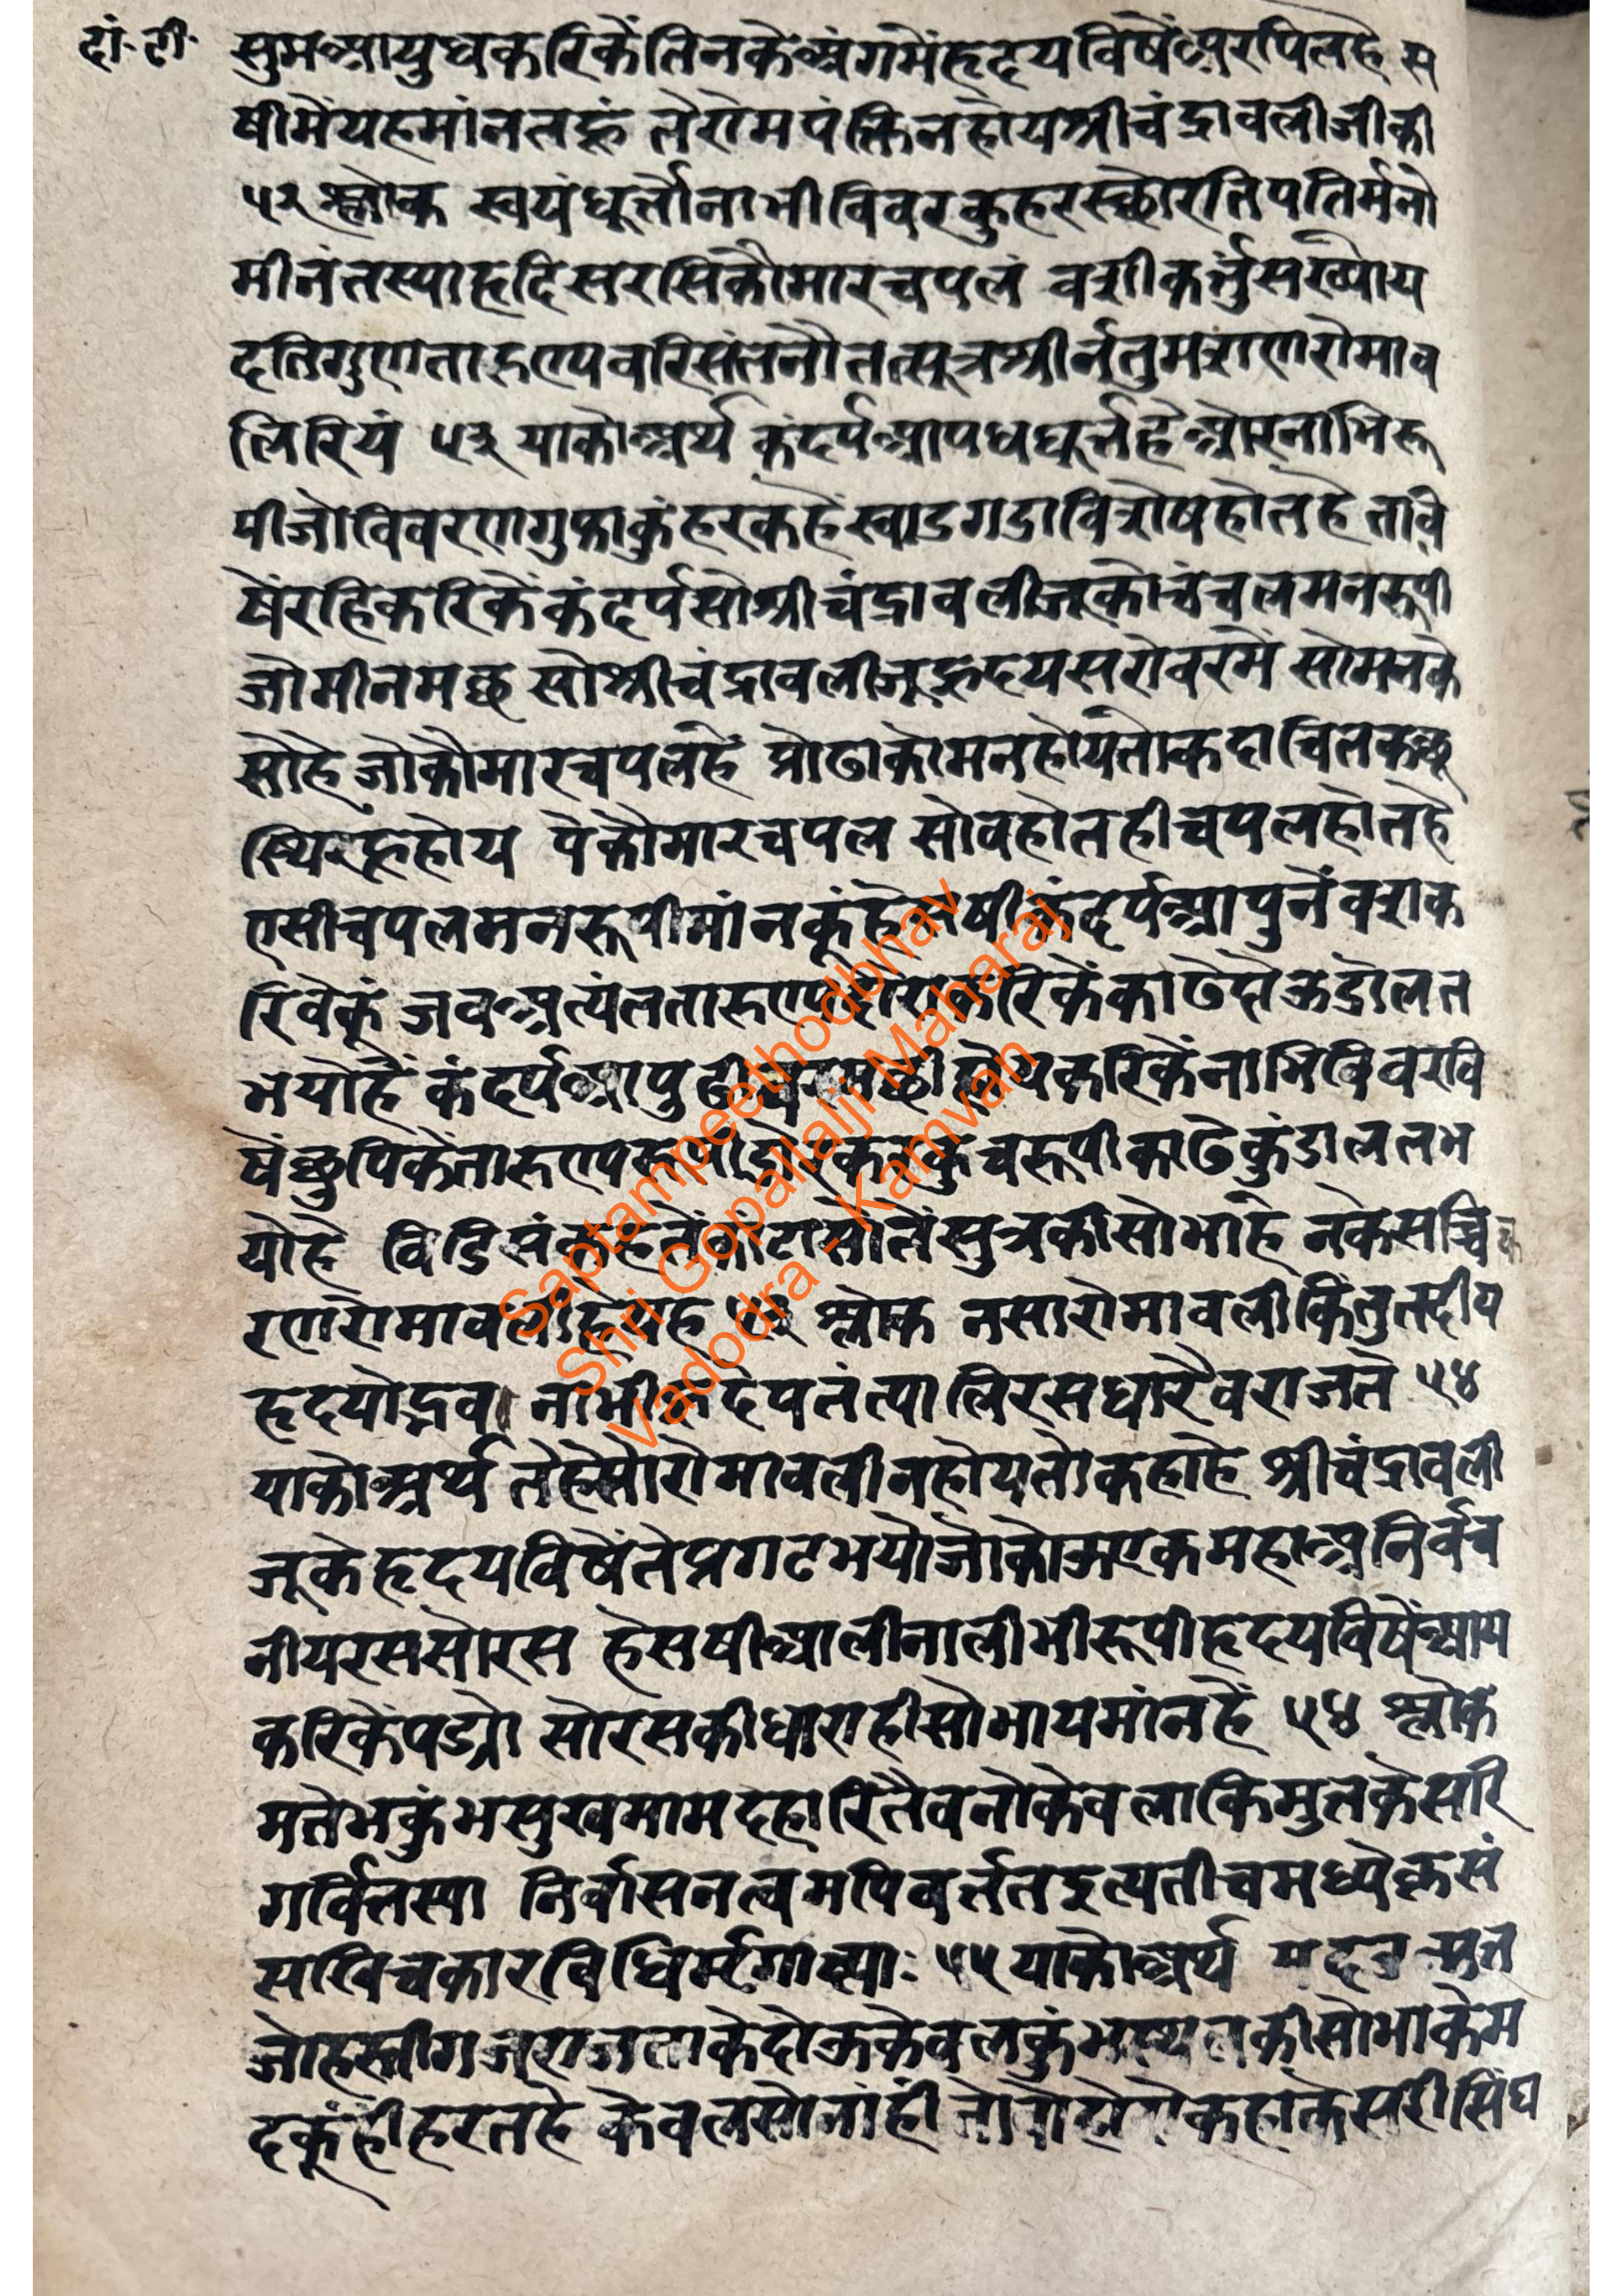 दां.टी.
सुमआयुधकरिकेंतिनकेअंगमेंहृदयविषेंअरपितहे स
षीमेंयहमांनतहूं तेरोमपंक्तिनहोयश्रीचंद्रावलीजीकी
५२ श्लोक स्वयंधूर्तोनाभीविवरकुहरस्छोरतिपतिर्मनो
मीनंतस्याहृदिसरसिकौमारचपलं वशीकर्तुंसख्याय
दतिगुणतारुण्यवरिसंतनौतत्सूत्रश्रीर्नतुमशणरोमाव
लिरियं ५३ याकोअर्थ कंदर्पआपधधूर्तहेओरनाभिरू
पीजोविवरणगुफाकुंहरकहेंखाडगडाविशेषहोतहेतावि
षेंरहिकरिकेंकंदर्पसोश्रीचंद्रावलीजूकोचंचलमनरूपी
जोमीनमछ सोश्रीचंद्रावलीजूहृदयसरोवरमें सोमनके
सोहे जोकौमारचपलहे प्रोढाकोमनहोयतोकदाचितकछू
स्थिरहूहोय पेंकौमारचपल सोवहोतहीचपलहोतहे
एसीचपलमनरूपीमांनकूंहेसषीकंदर्पआपुनेंवशक
रिवेकूं जवअत्यंततारुण्यदोराकरिकेंकाढेदोऊडोलत
भयोहें कंदर्पआपु
षेंछुपिकेंतारुण्यरूपीडोरकरकुचरूपीकाढेकुंडालतभ
योहे सुत्रकीसोभाहे नकेसच्चिक्क
रणरोमावलीहेयह ५३ श्लोक नसारोमावलीकिंतुतदीय
हृदयोद्भव। नाभीहृदेपतंत्पालिरसधारैवराजते ५४
याकोअर्थ तेहेसोरोमावलीनहोयतोकहाहे श्रीचंद्रावली
जूकेहृदयविषेंतेप्रगटभयोजोकोऊएकमहाअनिर्वच
नीयरससोरस हेसषीआलीनालीभीरूपीहृदयविषेंआय
करिकेंपडयो सोरसकीधाराहीसोभायमांनहें ५४ श्लोक
मतेभकुंभसुखमामदहारितैवनोकेवलाकिमुतकेसरि
गर्वितस्या निर्वासनत्वमपिवर्त्ततइत्यतीचमध्येकसं
सविचकारविधिर्मृगाक्ष्याः ५५ याकोअर्थ मदन
जोहस्तीगजराजताकेदोऊकेवलकुंभस्थलकीसोभाकेम
दकूंहीहरतहे केवलसोनांहीं कहाकेसरीसिंघ
Saptampeethodbhav
Shri Gopallalji Maharaj
Vadodra - Kamvan